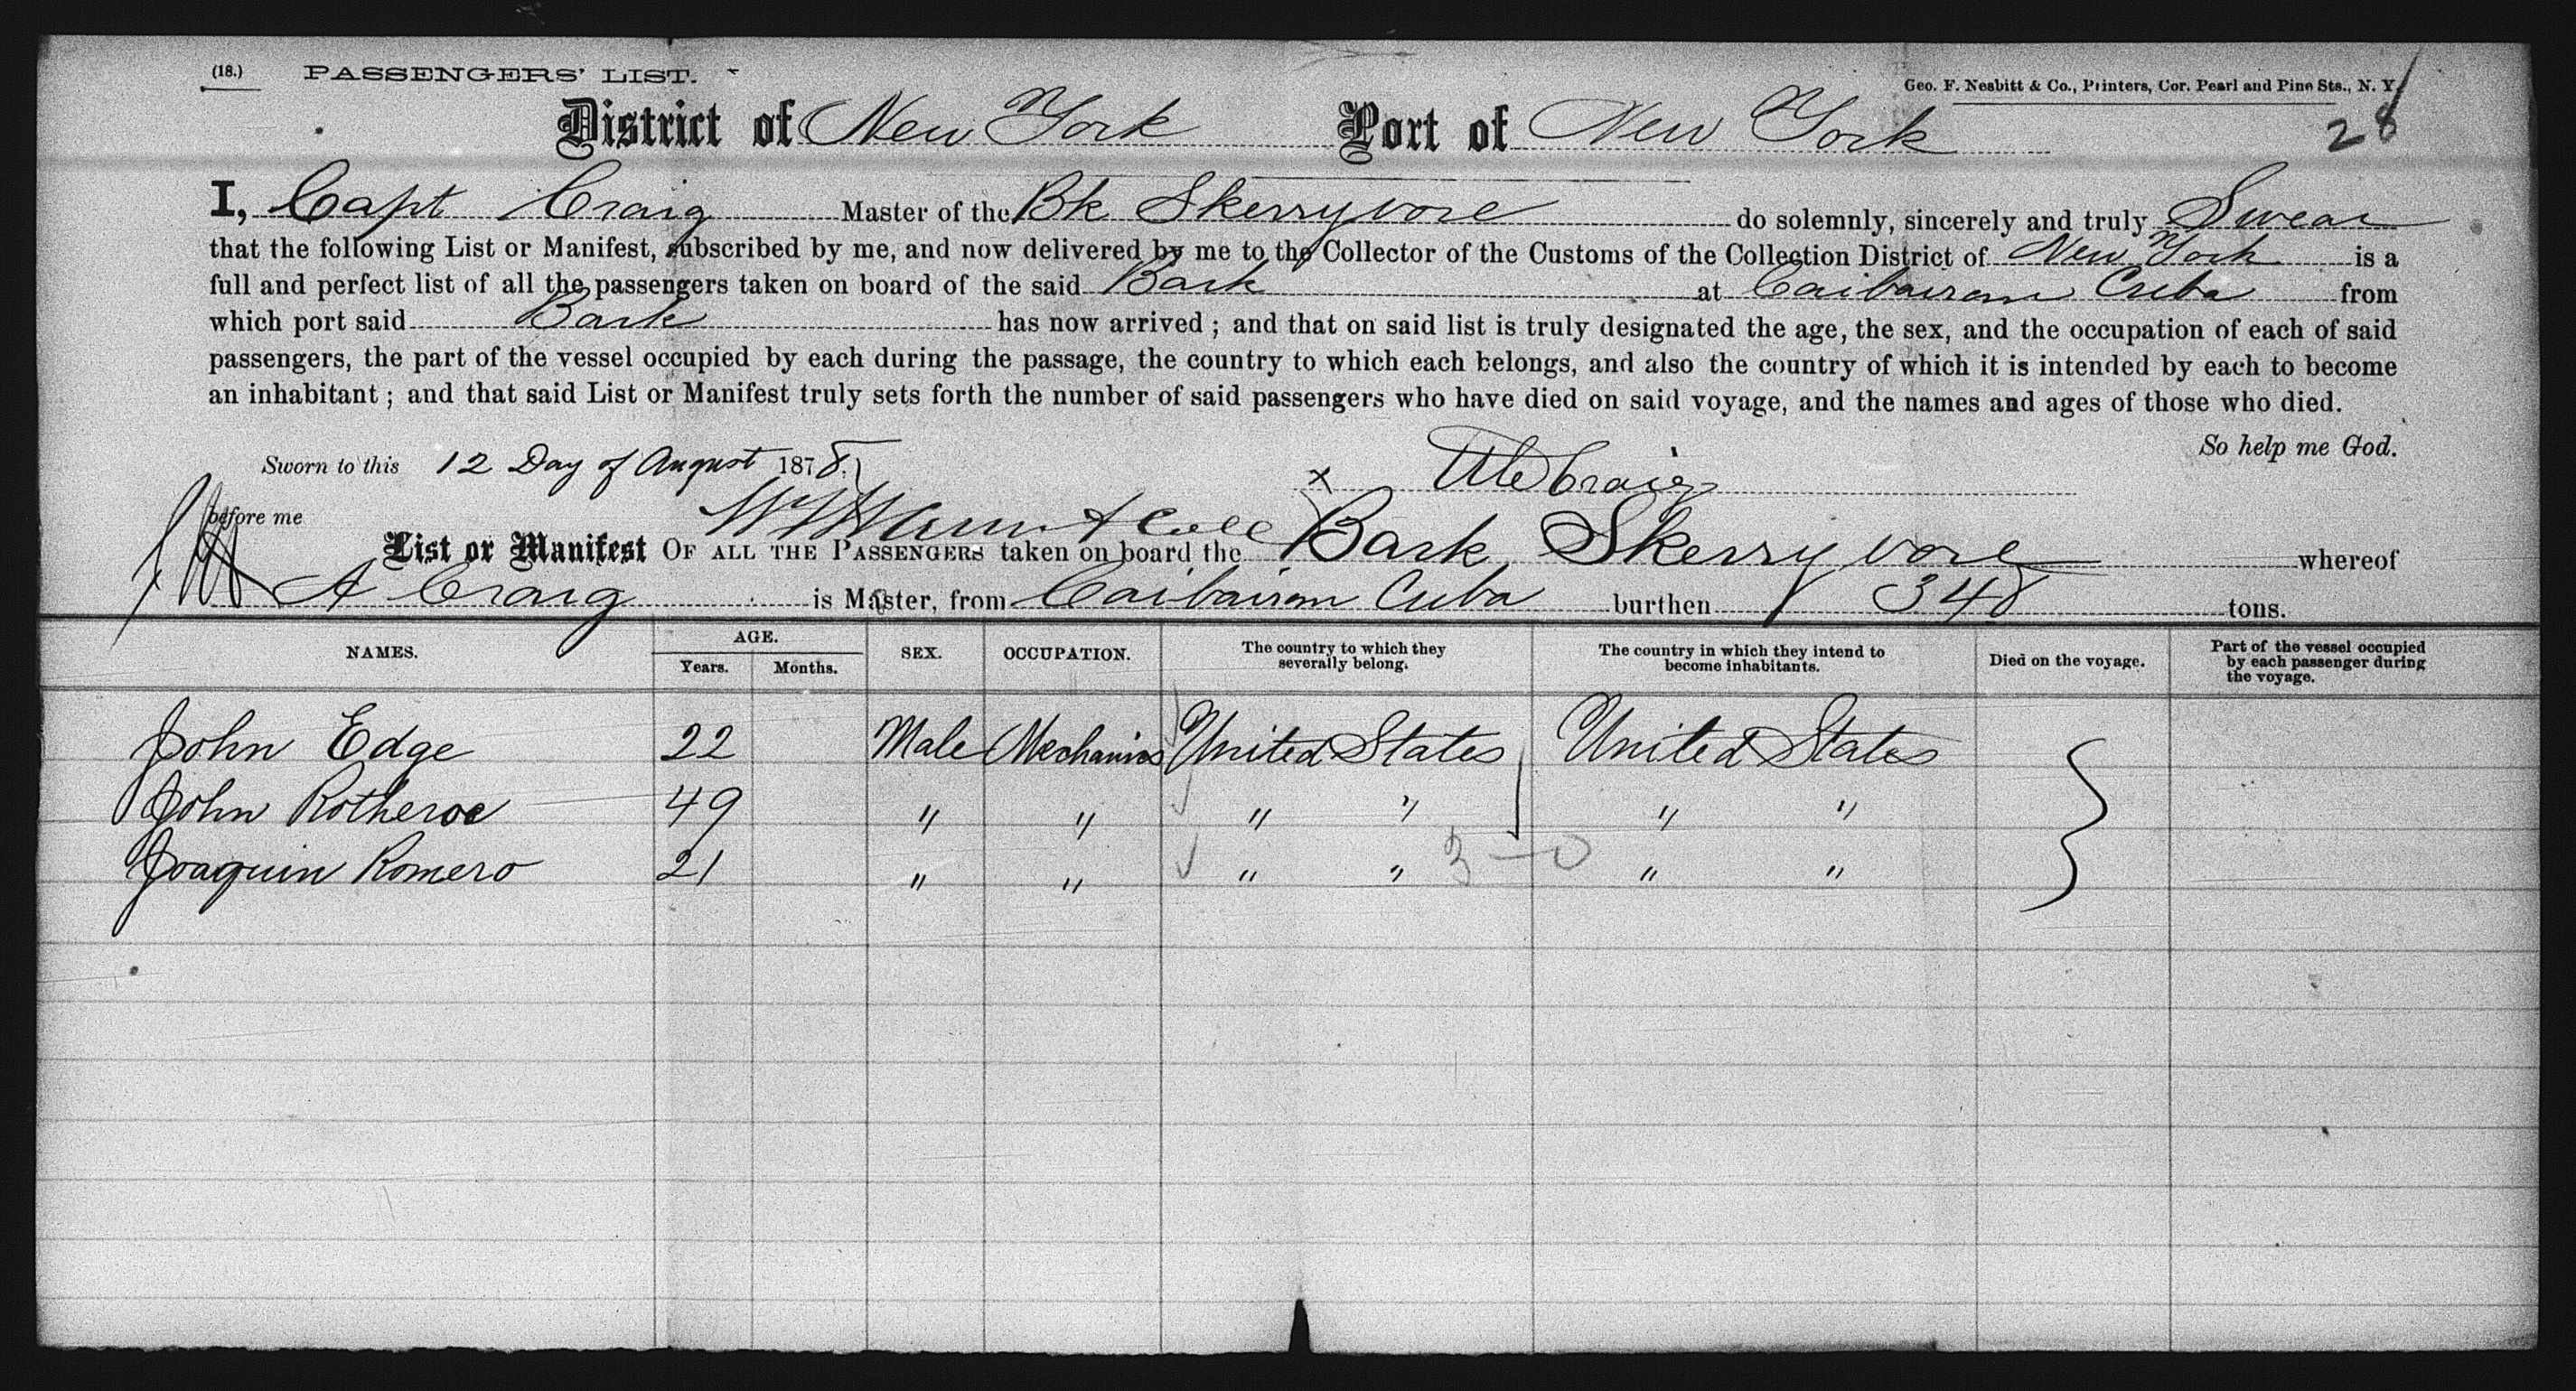 (18.) PASSENGERS' LIST.
Geo. F. Nesbitt & Co., Printers, Cor. Pearl and Pine Sts., N. Y.
District of New York Port of New York
28
I, Capt Craig Master of the Bk Skerryvore do solemnly, sincerely and truly Swear
that the following List or Manifest, subscribed by me, and now delivered by me to the Collector of the Customs of the Collection District of New York is a
full and perfect list of all the passengers taken on board of the said Bark at Caibairan Cuba from
which port said Bark has now arrived ; and that on said list is truly designated the age, the sex, and the occupation of each of said
passengers, the part of the vessel occupied by each during the passage, the country to which each belongs, and also the country of which it is intended by each to become
an inhabitant ; and that said List or Manifest truly sets forth the number of said passengers who have died on said voyage, and the names and ages of those who died.
So help me God.
Sworn to this 12 Day of August 1878.
x Craig
before me
List or Manifest OF ALL THE PASSENGERS taken on board the Bark Skerryvore whereof
A Craig is Master, from Caibairan Cuba burthen 348 tons.
NAMES. AGE. Years. Months. SEX. OCCUPATION. The country to which they severally belong. The country in which they intend to become inhabitants. Died on the voyage. Part of the vessel occupied by each passenger during the voyage.
John Edge 22 Male Mechanics United States United States
John Rotheroe 49 " " " " " "
Joaquin Romero 21 " " " " 3-0 " "